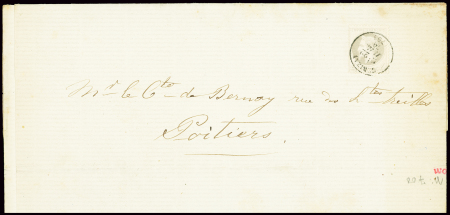 Mr le Cte de Bernay rue des Htes treilles
Poitiers.